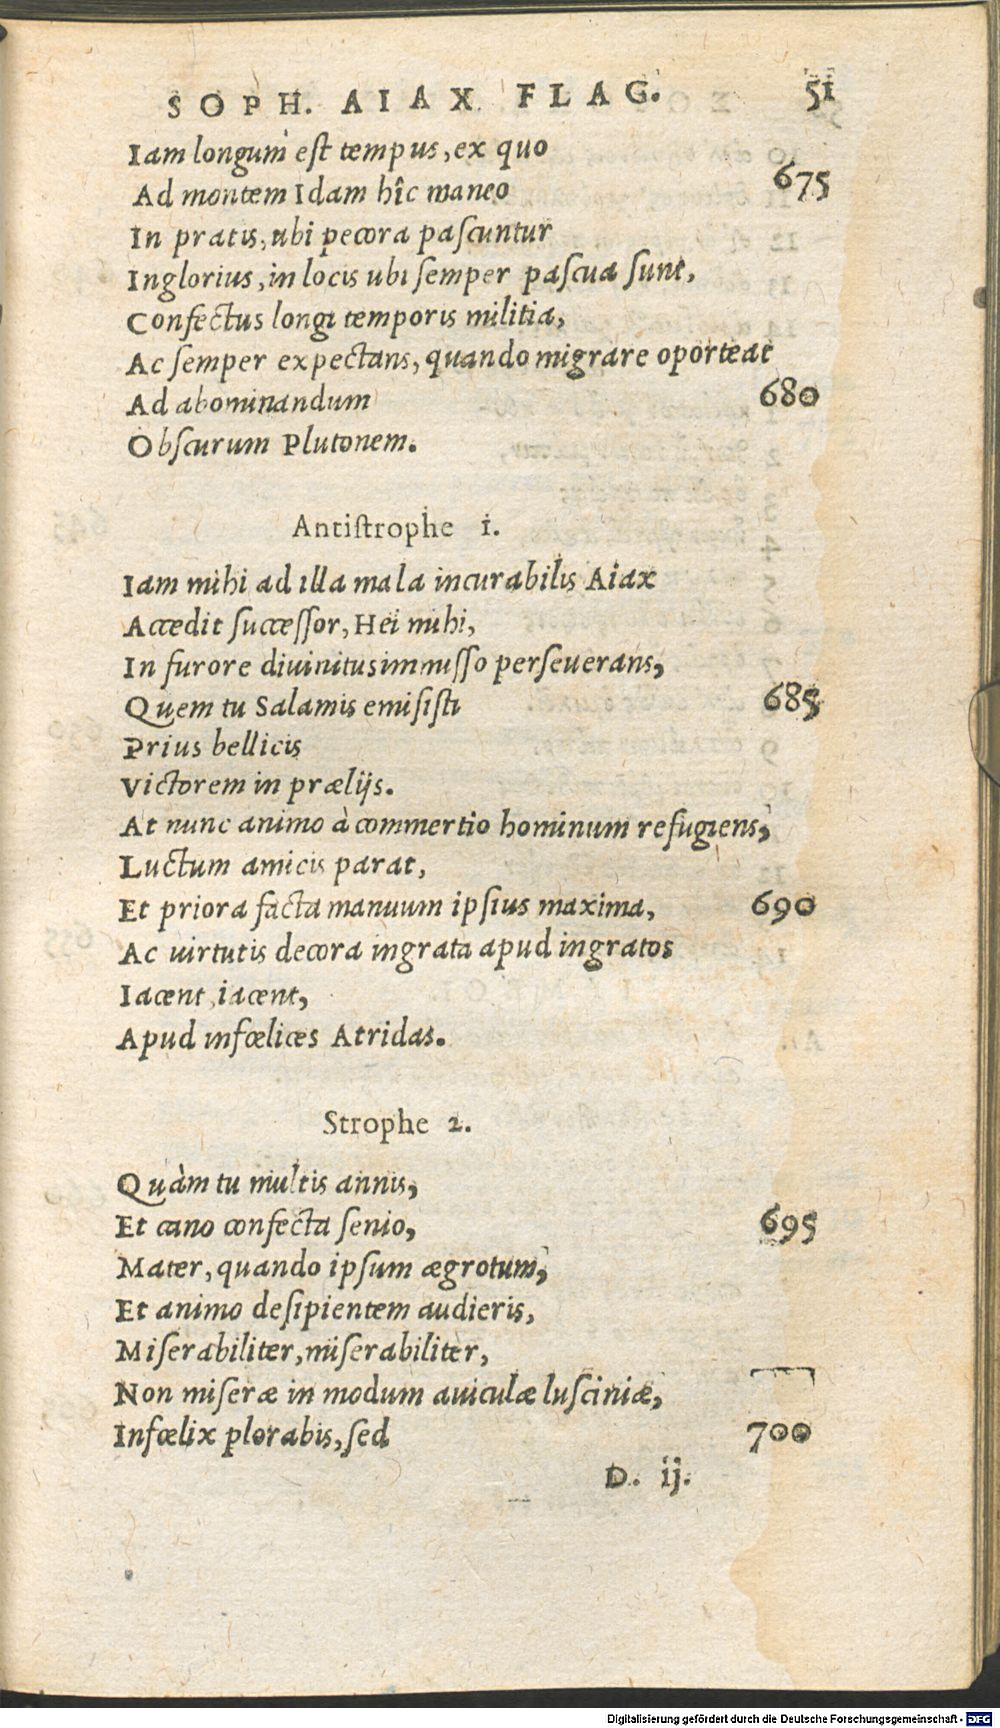 SOPH. AIAX FLAG. 51
Iam longum est tempus, ex quo
Ad montem Idam hîc maneo 675
In pratis, ubi pecora pascuntur
Inglorius, in locis ubi semper pascua sunt,
Confectus longi temporis militia,
Ac semper expectans, quando migrare oporteat
Ad abominandum 680
Obscurum Plutonem.
Antistrophe 1.
Iam mihi ad illa mala incurabilis Aiax
Accedit successor, Hei mihi,
In furore divinitus immisso perseuerans,
Quem tu Salamis emisisti 685
Prius bellicis
Victorem in prælijs.
At nunc animo à commertio hominum refugiens,
Luctum amicis parat,
Et priora facta manuum ipsius maxima, 690
Ac virtutis decora ingrata apud ingratos
Iacent, iacent,
Apud infœlices Atridas.
Strophe 2.
Quàm tu multis annis,
Et cano confecta senio, 695
Mater, quando ipsum ægrotum,
Et animo desipientem audieris,
Miserabiliter, miserabiliter,
Non miseræ in modum auiculæ lusciniæ,
Infœlix plorabis, sed 700
D. ij.
Digitalisierung gefördert durch die Deutsche Forschungsgemeinschaft - DFG